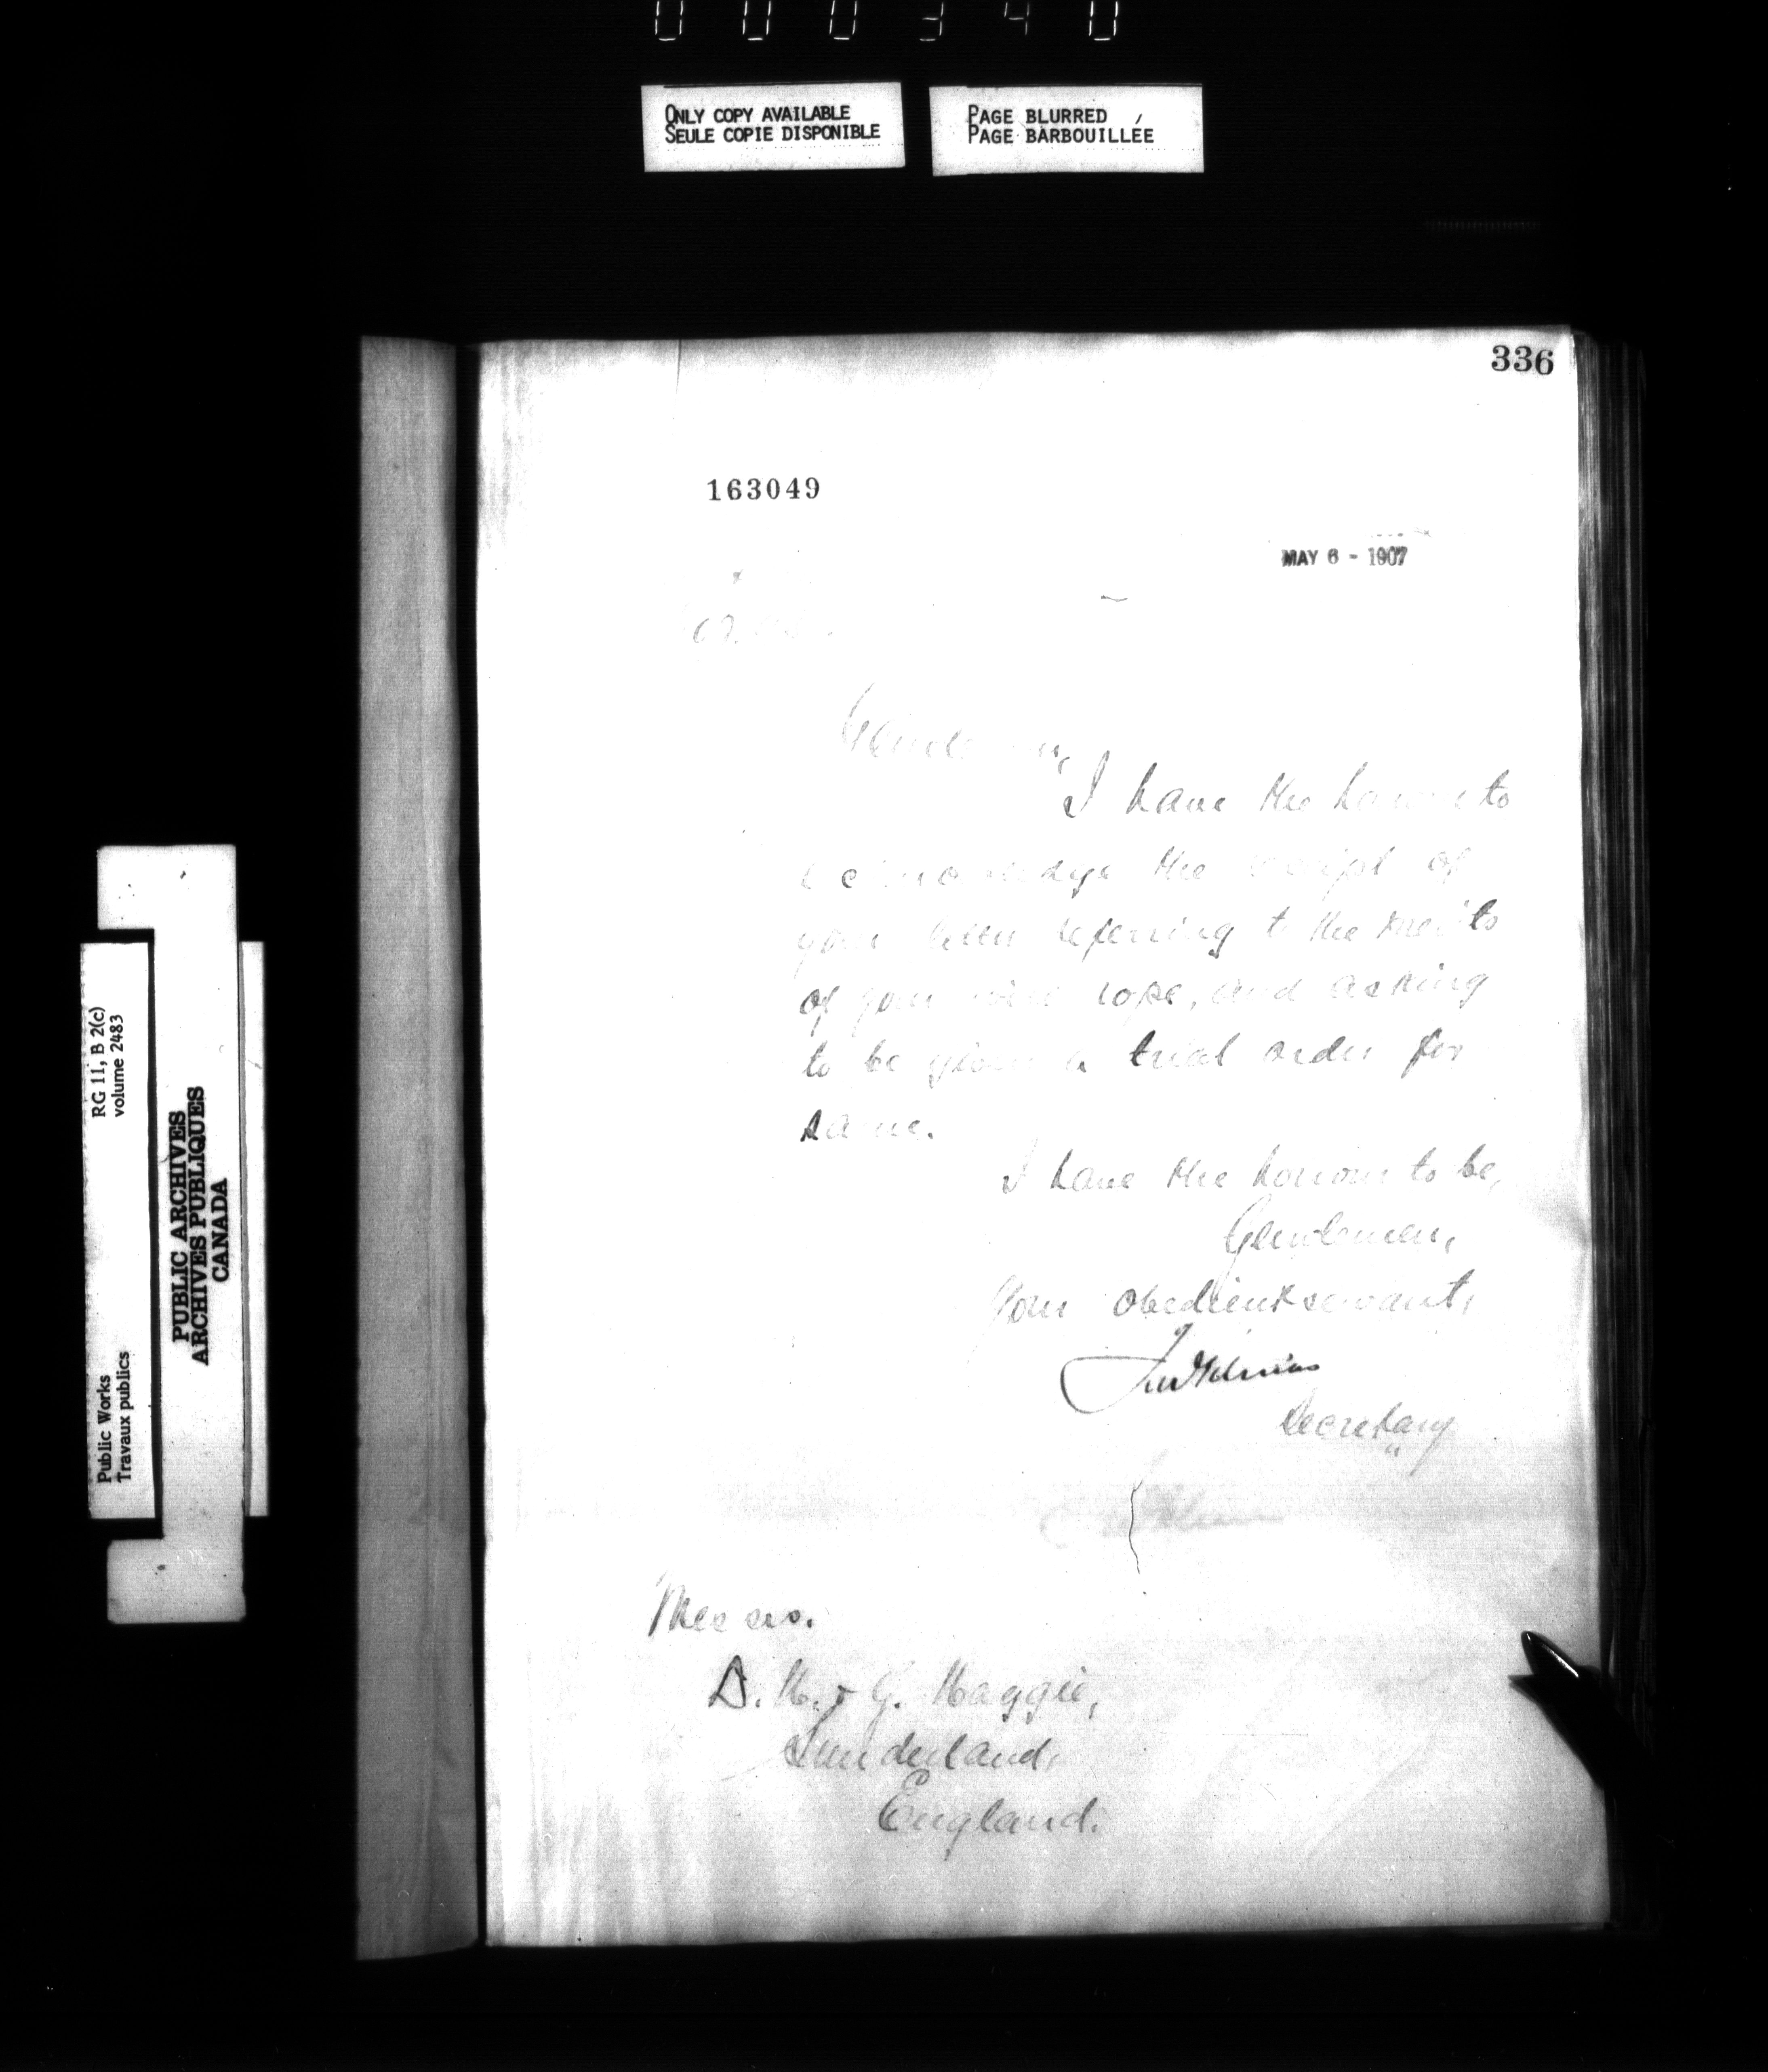 000340
ONLY COPY AVAILABLE
SEULE COPIE DISPONIBLE
PAGE BLURRED
PAGE BARBOUILLÉE
336
163049
MAY 6 - 1907
Gentlemen,
I have the honour to
acknowledge the receipt of
your letter referring to the merits
of your wire rope, and asking
to be given a trial order for
same.
I have the honour to be,
Gentlemen,
Your obedient servant,
Secretary
Messrs.
D. H. & G. Haggie,
Sunderland,
England.
RG 11, B 2(c)
volume 2483
Public Works
Travaux publics
PUBLIC ARCHIVES
ARCHIVES PUBLIQUES
CANADA